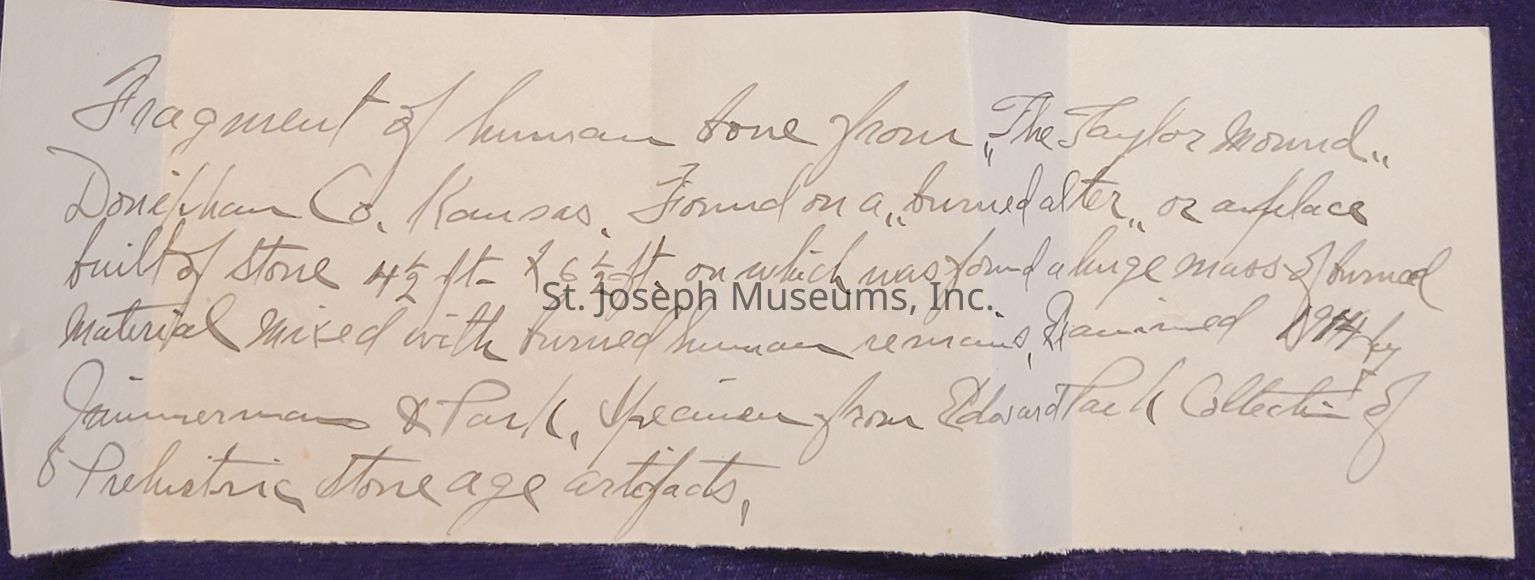 Fragment of human bone from „The Taylor Mound„
Doniphan Co. Kansas. Found on a „burned alter„ or a place
built of stone 4½ ft- X 6½ ft. on which was found a huge mass of burned
St. Joseph Museums, Inc.
material mixed with burned human remains, Examined 1914 by
Zimmerman & Park, Specimen from Edward Park Collection of
Prehistoric stone age artifacts,